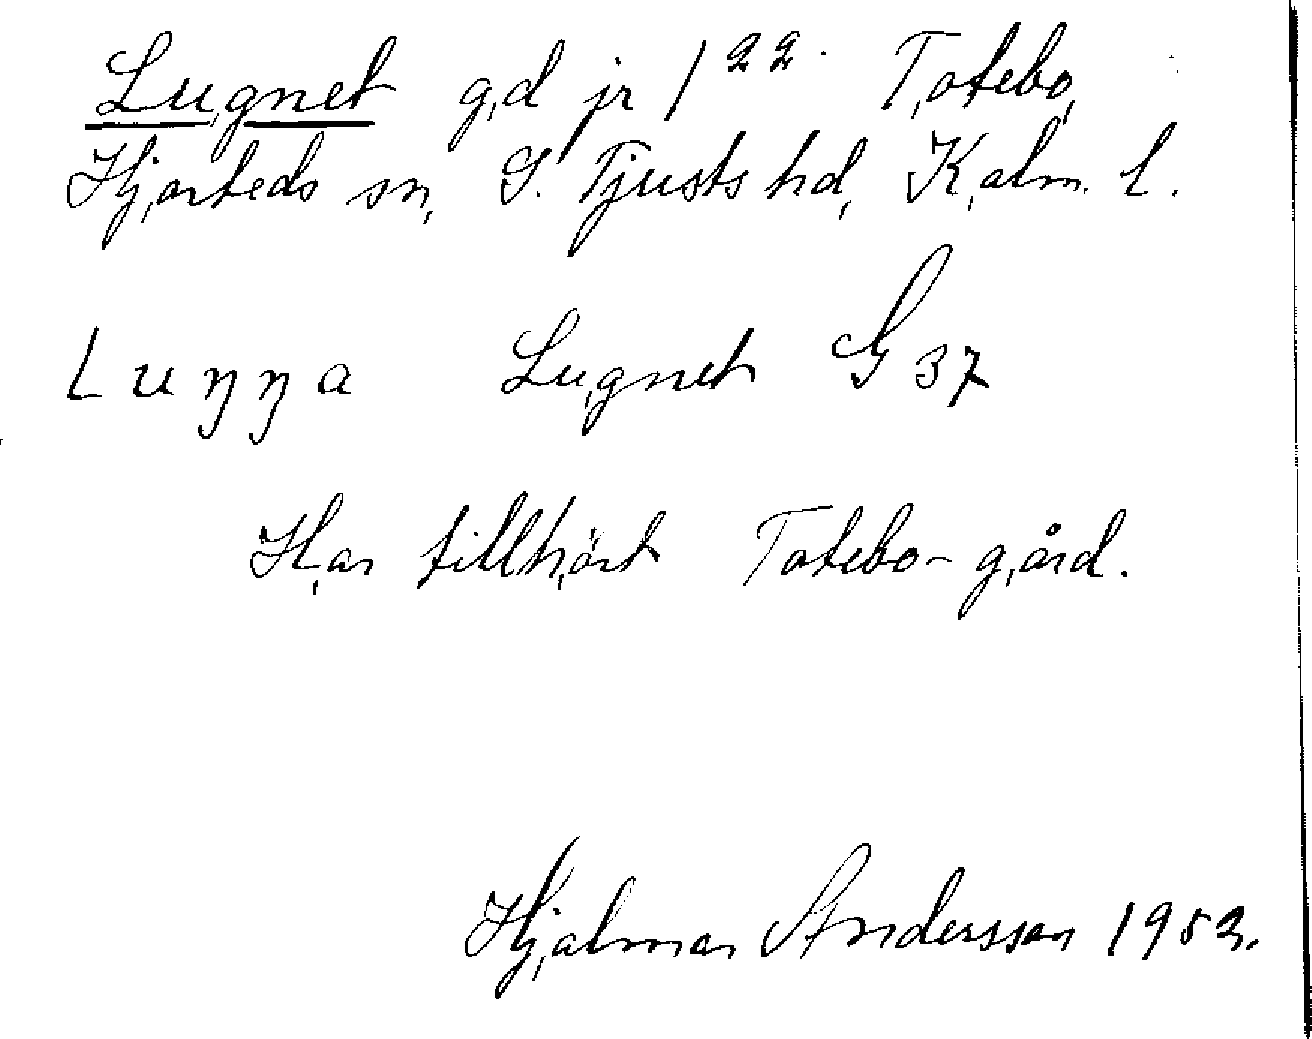 Lugnet gd jr 1²² Totebo,
Hjorteds sn, S. Tjusts hd, Kalm. l.
Luŋŋa Lugnet G 37
Har tillhört Totebo-gård.
Hjalmar Andersson 1953.